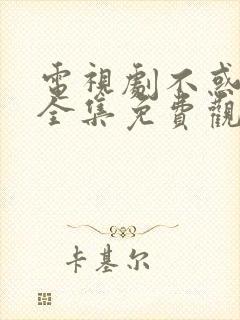 電視劇不惑
全集免費觀
卡基尔